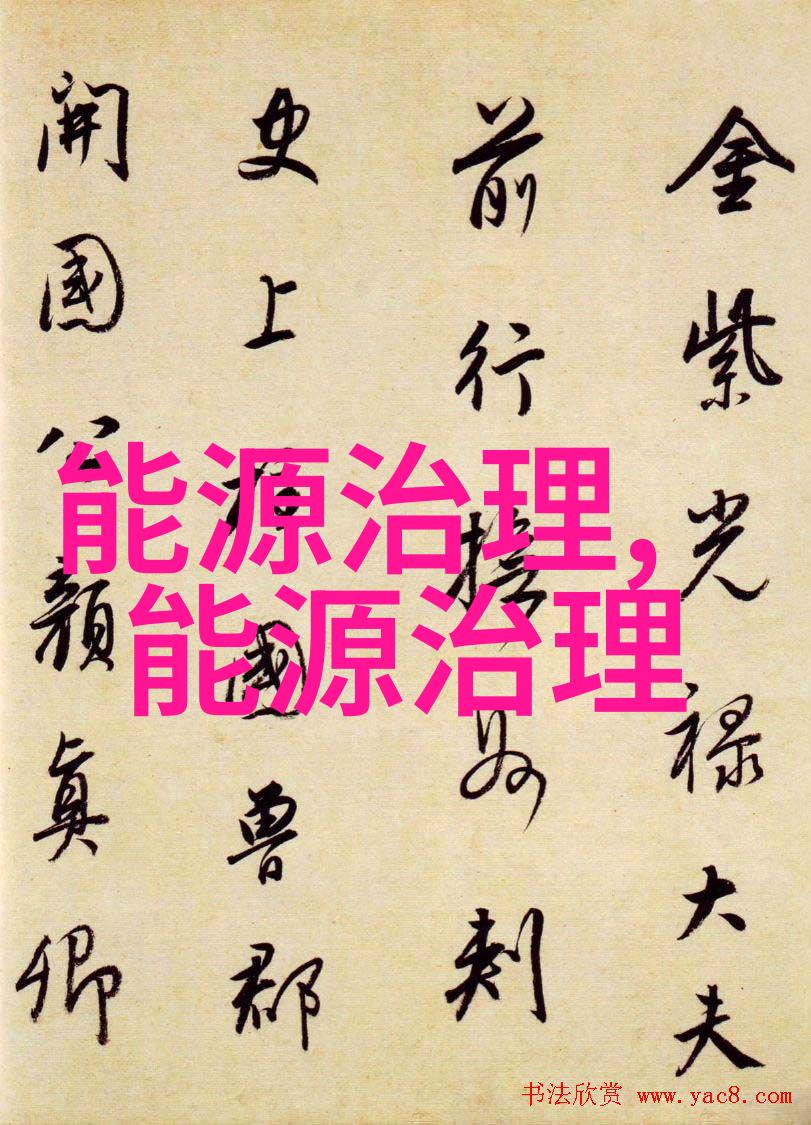 金紫光禄大夫
前行撫州刺
史上柱國魯郡
開國公顏真卿
能源治理,
能源治理
书法欣赏 www.yac8.com